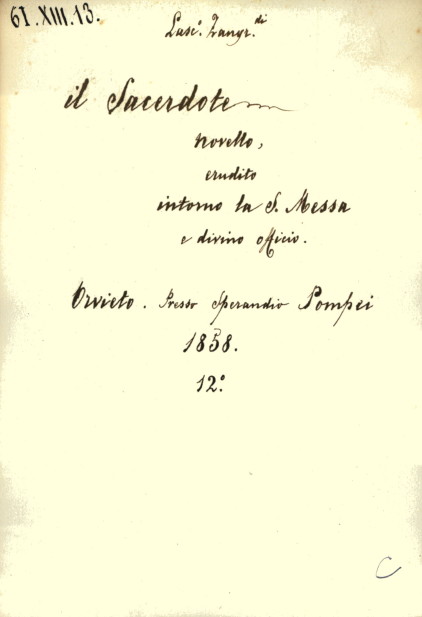 61.XIII.13.
Lasc. Zangr.di
il Sacerdote
novello,
erudito
intorno la S. Messa
e divino officio.
Orvieto. Presso Sperandio Pompei
1858.
12.°
C